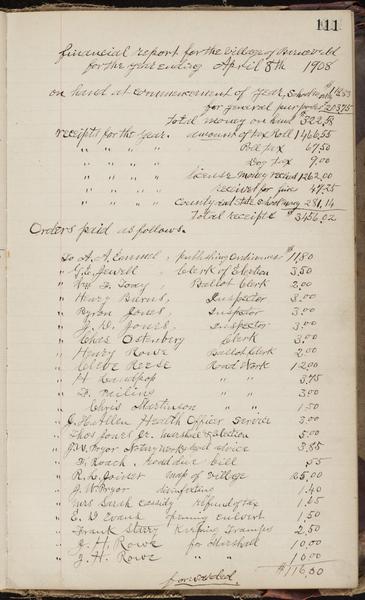 111
Financial report for the Village of Barneveld
for the year ending April 8th 1908
on hand at commencement of year, School
for general purposes 213.75
Total money on hand $322.58
receipts for the year. amount of tax Roll 1466.55
" " " " Poll tax 67.50
" " " " Dog tax 9.00
" " " " license money received 1262.00
" " " " received for fines 47.25
" " " " County and State School money 281.14
Total receipts $3456.02
Orders paid as follows.
to A. A. , Publishing Ordinances $11.80
" G. E. Jewell , Clerk of Election 3.50
" Wm J. Gray , Ballot Clerk 2.00
" Henry Burns , Inspector 3.00
" Byron Jones , Inspector 3.00
" J. D. Jones , Inspector 3.00
" Chas Ostenburg Clerk 3.00
" Henry Rowe Ballot Clerk 2.00
" Cleve Reese Road Work 12.00
" H " " 3.75
" D. " " 3.00
" Chris Martinson " " 1.50
" J. Hutllen Health Officer Service 3.00
" Thos Jones Jr. Marshal & election 5.00
" J. W. Pryor Notary work legal advice 3.85
" D. Roach. bill .55
" R. L. Joiner map of Village 25.00
" J. W. Pryor disinfecting 1.40
" Mrs Sarah Cassidy refund of tax 1.45
" E. D Evans opening culvert 1.50
" Frank Stary Keeping Tramps 2.50
" J. H. Rowe for Marshall 10.00
" J. H. Rowe " " 10.00
forwarded $116.30